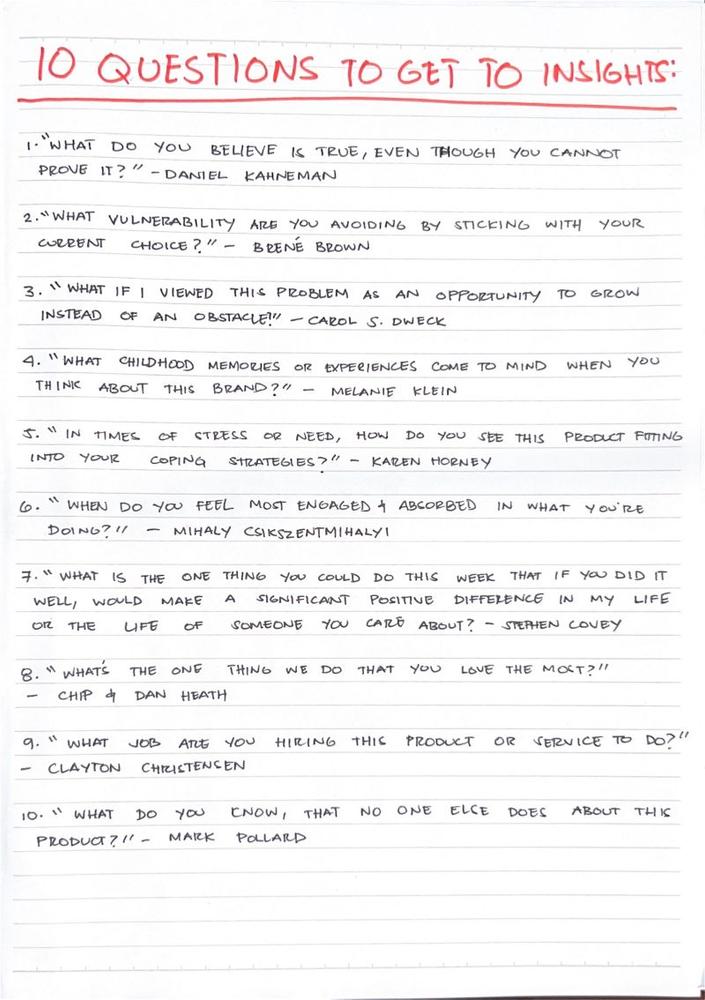 10 QUESTIONS TO GET TO INSIGHTS:
1. "WHAT DO YOU BELIEVE IS TRUE, EVEN THOUGH YOU CANNOT
PROVE IT?" - DANIEL KAHNEMAN
2. "WHAT VULNERABILITY ARE YOU AVOIDING BY STICKING WITH YOUR
CURRENT CHOICE?" - BRENÉ BROWN
3. "WHAT IF I VIEWED THIS PROBLEM AS AN OPPORTUNITY TO GROW
INSTEAD OF AN OBSTACLE?" - CAROL S. DWECK
4. "WHAT CHILDHOOD MEMORIES OR EXPERIENCES COME TO MIND WHEN YOU
THINK ABOUT THIS BRAND?" - MELANIE KLEIN
5. "IN TIMES OF STRESS OR NEED, HOW DO YOU SEE THIS PRODUCT FITTING
INTO YOUR COPING STRATEGIES?" - KAREN HORNEY
6. "WHEN DO YOU FEEL MOST ENGAGED & ABSORBED IN WHAT YOU'RE
DOING?" - MIHALY CSIKSZENTMIHALYI
7. "WHAT IS THE ONE THING YOU COULD DO THIS WEEK THAT IF YOU DID IT
WELL, WOULD MAKE A SIGNIFICANT POSITIVE DIFFERENCE IN MY LIFE
OR THE LIFE OF SOMEONE YOU CARE ABOUT? - STEPHEN COVEY
8. "WHAT'S THE ONE THING WE DO THAT YOU LOVE THE MOST?"
- CHIP & DAN HEATH
9. "WHAT JOB ARE YOU HIRING THIS PRODUCT OR SERVICE TO DO?"
- CLAYTON CHRISTENSEN
10. "WHAT DO YOU KNOW, THAT NO ONE ELSE DOES ABOUT THIS
PRODUCT?" - MARK POLLARD